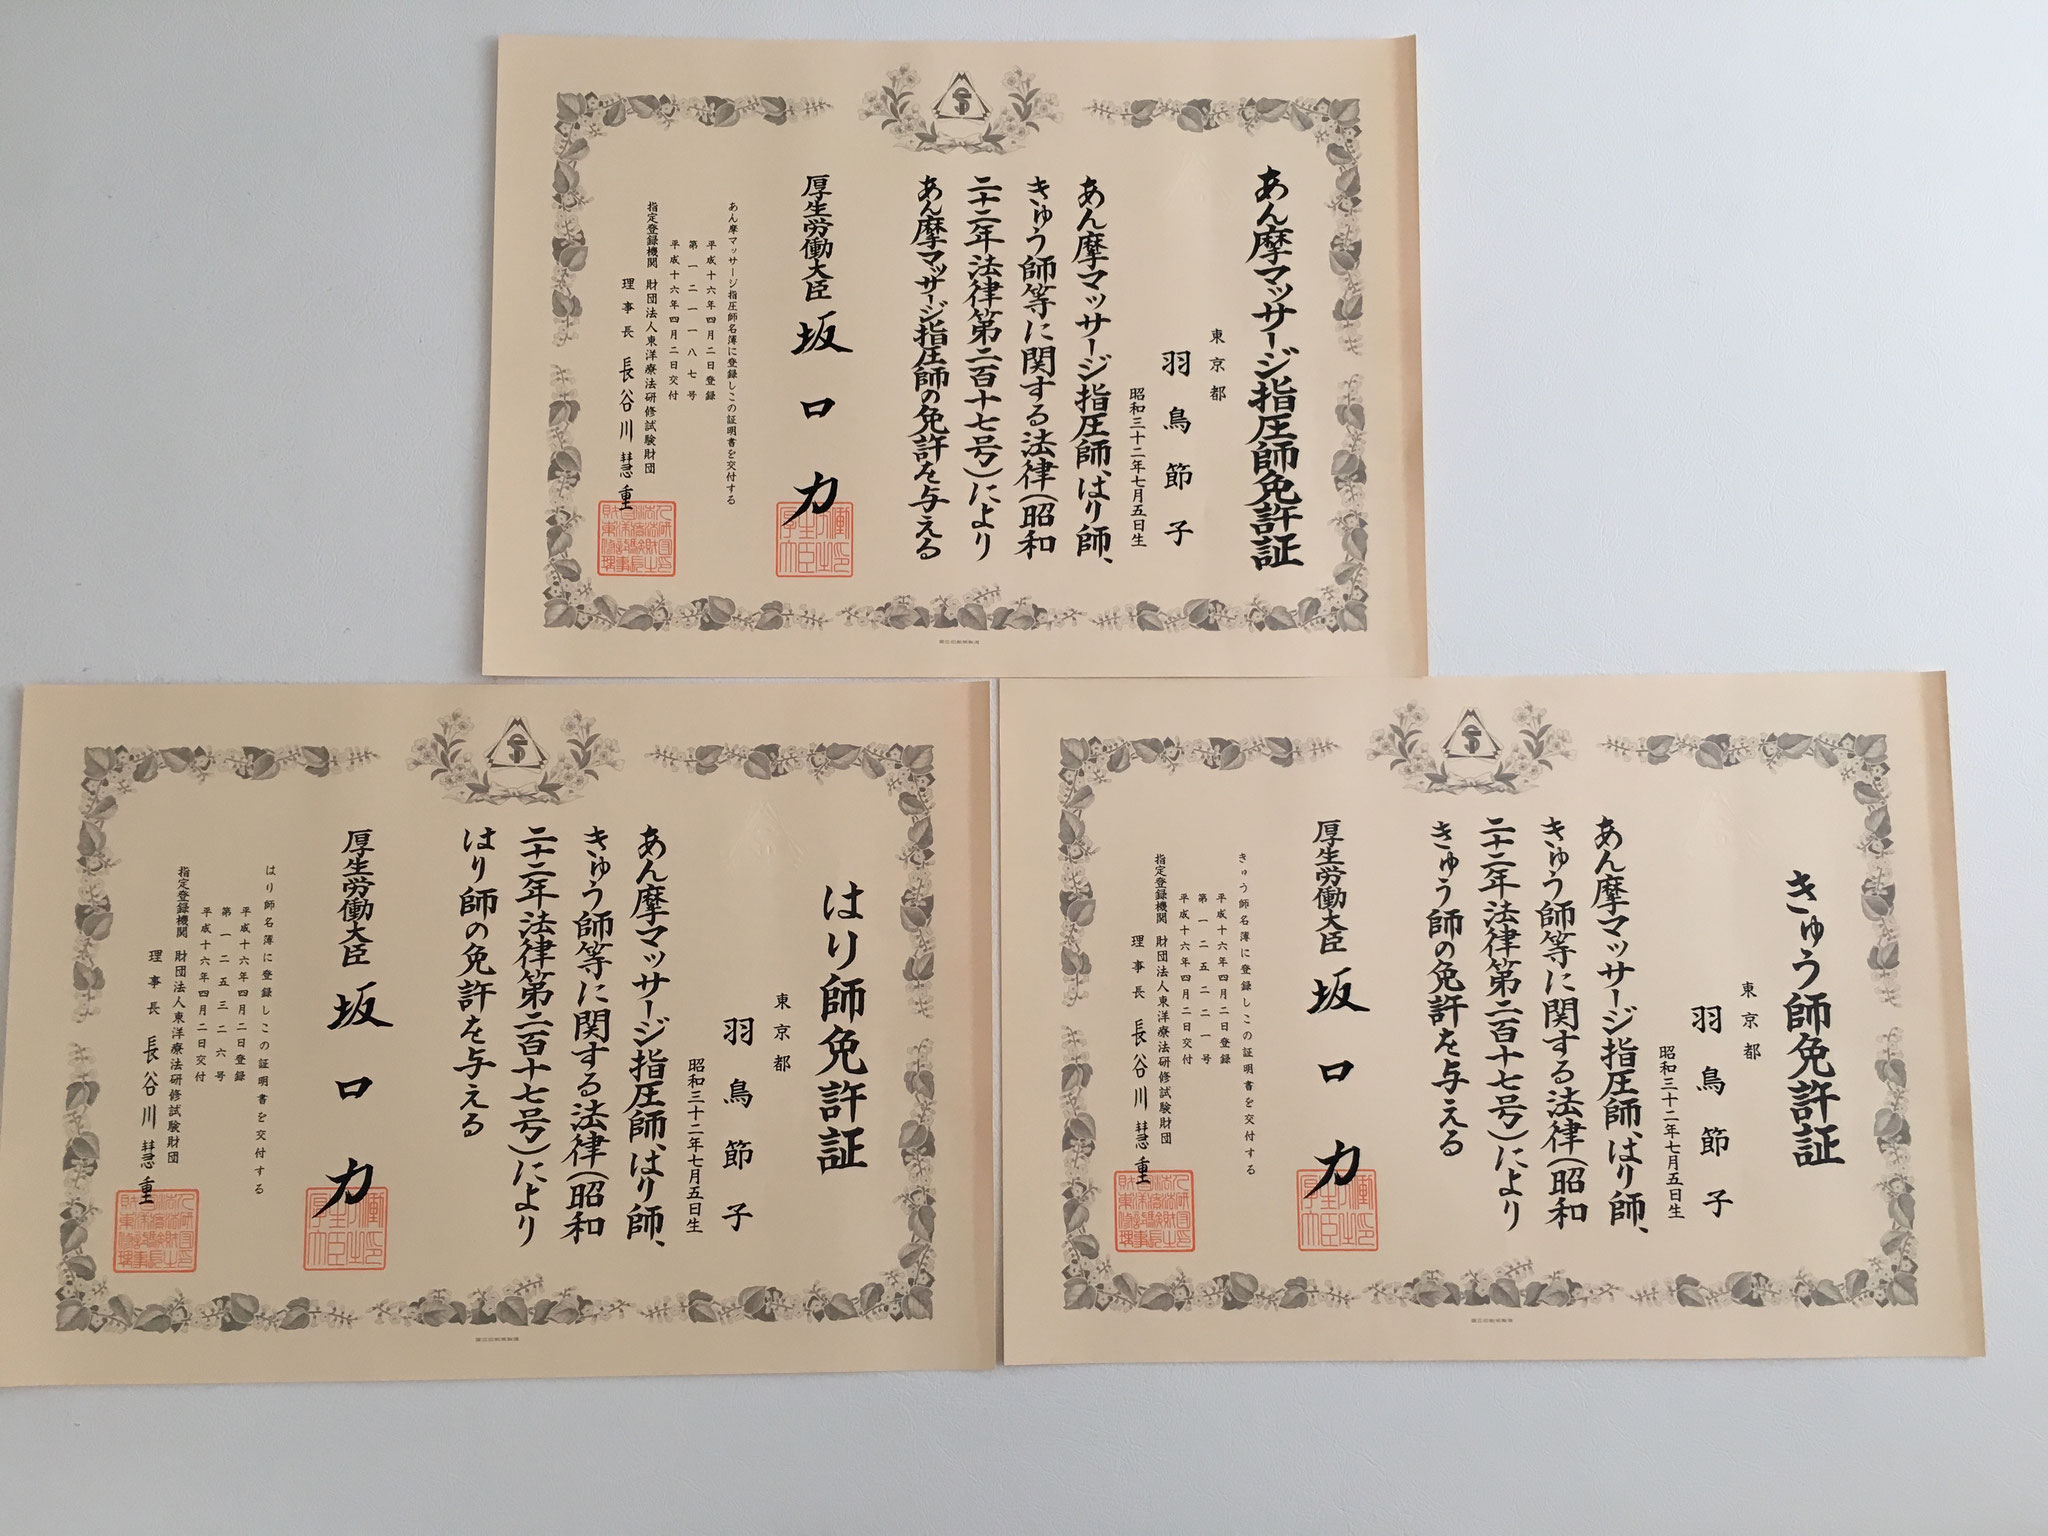 あん摩マッサージ指圧師免許証
東京都
羽鳥節子
昭和三十二年七月五日生
あん摩マッサージ指圧師、はり師、
きゅう師等に関する法律(昭和
二十二年法律第二百十七号)により
あん摩マッサージ指圧師の免許を与える
厚生労働大臣 坂口力
あん摩マッサージ指圧師名簿に登録しこの証明書を交付する
平成十六年四月二日登録
第一二一一八七号
平成十六年四月二日交付
指定登録機関 財団法人東洋療法研修試験財団
理事長 長谷川慧重
はり師免許証
東京都
羽鳥節子
昭和三十二年七月五日生
あん摩マッサージ指圧師、はり師、
きゅう師等に関する法律(昭和
二十二年法律第二百十七号)により
はり師の免許を与える
厚生労働大臣 坂口力
はり師名簿に登録しこの証明書を交付する
平成十六年四月二日登録
第一二五三二六号
平成十六年四月二日交付
指定登録機関 財団法人東洋療法研修試験財団
理事長 長谷川慧重
きゅう師免許証
東京都
羽鳥節子
昭和三十二年七月五日生
あん摩マッサージ指圧師、はり師、
きゅう師等に関する法律(昭和
二十二年法律第二百十七号)により
きゅう師の免許を与える
厚生労働大臣 坂口力
きゅう師名簿に登録しこの証明書を交付する
平成十六年四月二日登録
第一二五二二一号
平成十六年四月二日交付
指定登録機関 財団法人東洋療法研修試験財団
理事長 長谷川慧重